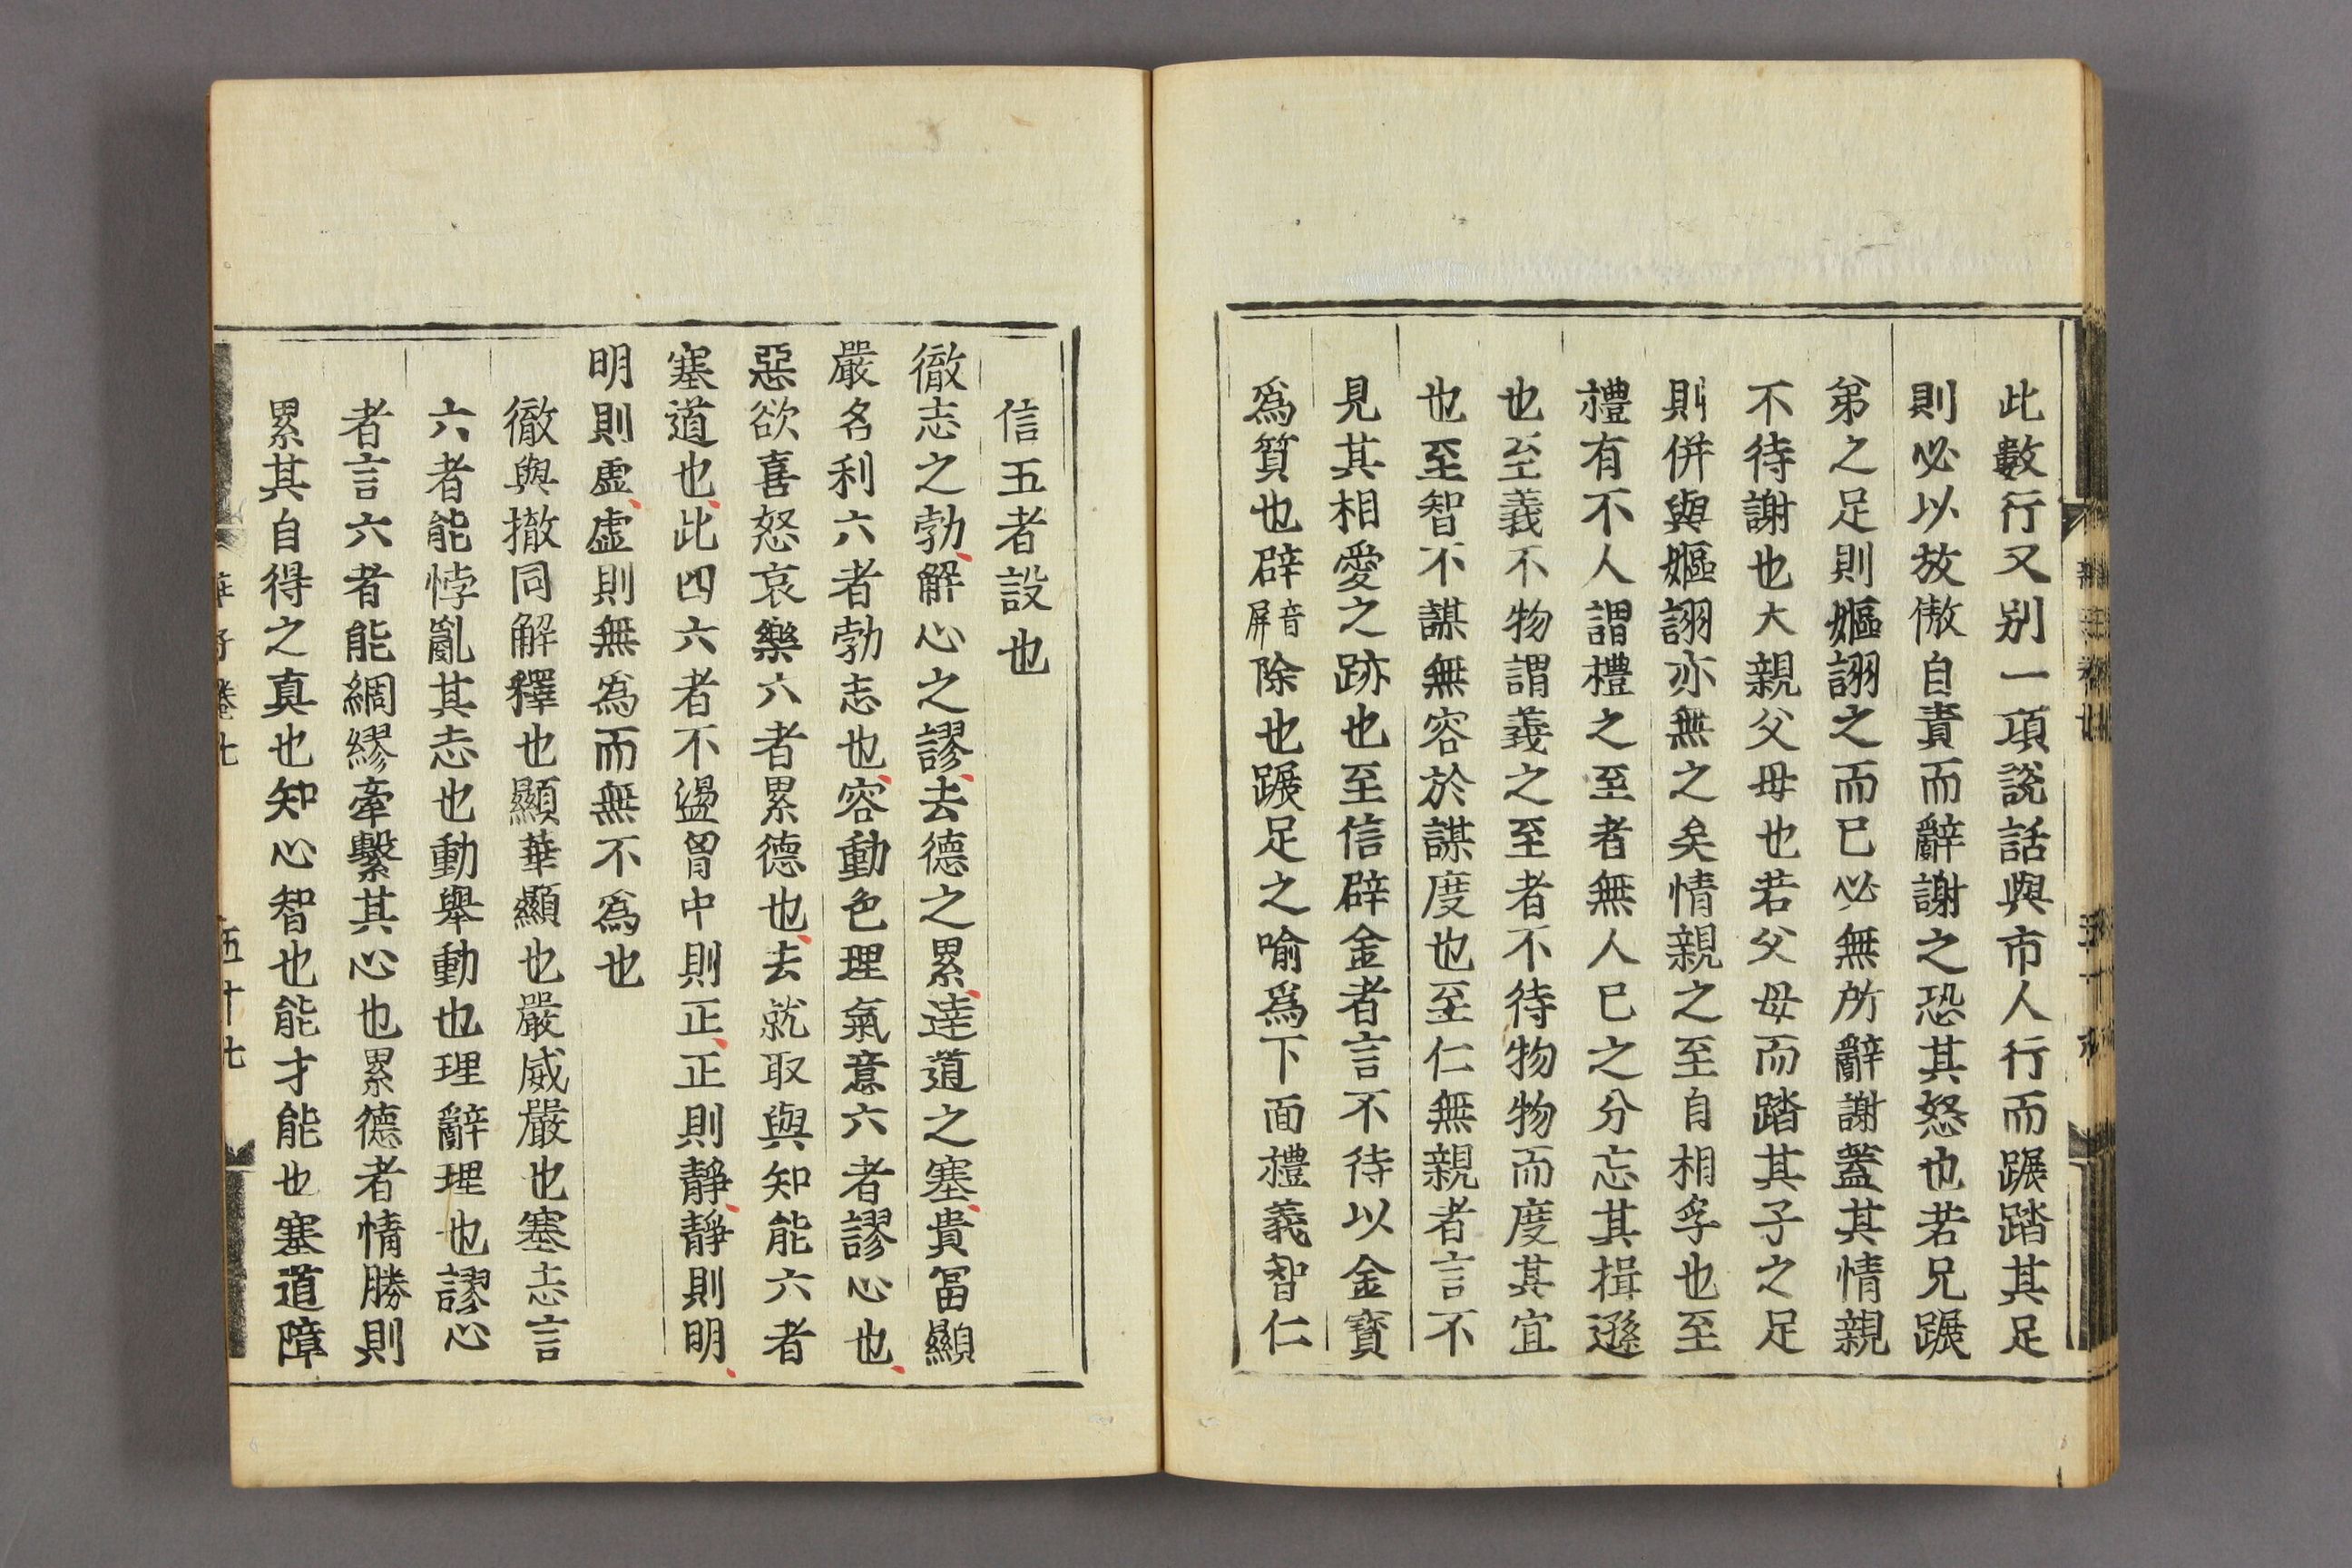 此數行又别一項說話與市人行而蹍踏其足
則必以放傲自責而辭謝之恐其怒也若兄蹍
弟之足則嫗詡之而已必無所辭謝蓋其情親
不待謝也大親父母也若父母而踏其子之足
則併與嫗詡亦無之矣情親之至自相孚也至
禮有不人謂禮之至者無人已之分忘其揖遜
也至義不物謂義之至者不待物物而度其宜
也至智不謀無容於謀度也至仁無親者言不
見其相愛之跡也至信辟金者言不待以金寶
爲質也辟音屏除也蹍足之喻爲下面禮義智仁
信五者設也
徹志之勃解心之謬去德之累達道之塞貴冨顯
嚴名利六者勃志也容動色理氣意六者謬心也
惡欲喜怒哀樂六者累德也去就取與知能六者
塞道也此四六者不盪胷中則正正則靜靜則明
明則虛虛則無爲而無不爲也
徹與撤同解釋也顯華顯也嚴威嚴也塞志言
六者能悖亂其志也動舉動也理辭理也謬心
者言六者能綢繆牽繫其心也累德者情勝則
累其自得之真也知心智也能才能也塞道障
莊子卷七 五十七